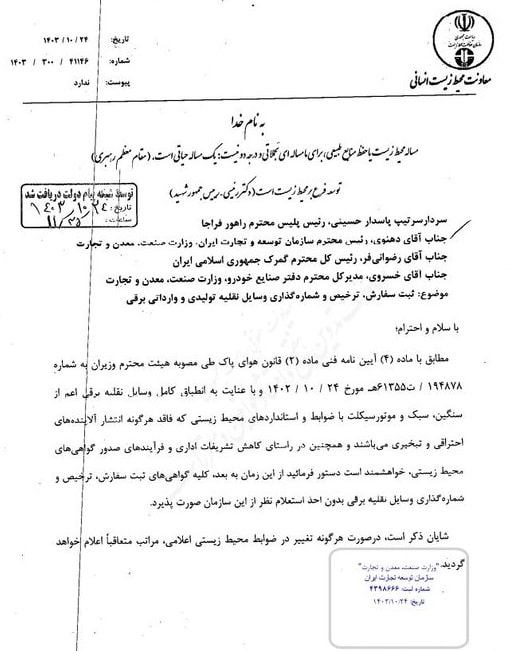 ریاست جمهوری
سازمان حفاظت محیط زیست
معاونت محیط زیست انسانی
تاریخ: ۱۴۰۳ / ۱۰ / ۲۴
شماره: ۴۱۱۴۶ / ۳۰۰ / ۱۴۰۳
پیوست: ندارد
به نام خدا
مساله محیط زیست یا حفظ منابع طبیعی، برای ما مساله ای تجملاتی و درجه دو نیست؛ یک مساله حیاتی است. (مقام معظم رهبری)
توسعه فرع بر محیط زیست است (دکتر رئیسی، رییس جمهور شهید)
توسط شیفته پیام دولت دریافت شد
تاریخ: ۱۴۰۳/۱۰/۲۴
ساعت: ۱۱/۳۵
سردار سرتیپ پاسدار حسینی، رئیس پلیس محترم راهور فراجا
جناب آقای دهنوی، رئیس محترم سازمان توسعه و تجارت ایران- وزارت صنعت، معدن و تجارت
جناب آقای رضوانی‌فر، رئیس کل محترم گمرک جمهوری اسلامی ایران
جناب اقای خسروی، مدیرکل محترم دفتر صنایع خودرو، وزارت صنعت، معدن و تجارت
موضوع: ثبت سفارش، ترخیص و شماره‌گذاری وسایل نقلیه تولیدی و وارداتی برقی
با سلام و احترام؛
مطابق با ماده (۴) آیین نامه فنی ماده (۲) قانون هوای پاک طی مصوبه هیئت محترم وزیران به شماره
۱۹۴۸۷۸ / ت۶۱۳۵۵هـ مورخ ۲۴ / ۱۰ / ۱۴۰۲ و با عنایت به انطباق کامل وسایل نقلیه برقی اعم از
سنگین، سبک و موتورسیکلت با ضوابط و استانداردهای محیط زیستی که فاقد هرگونه انتشار آلاینده‌های
احتراقی و تبخیری می‌باشند و همچنین در راستای کاهش تشریفات اداری و فرآیندهای صدور گواهی‌های
محیط زیستی، خواهشمند است دستور فرمائید از این زمان به بعد، کلیه گواهی‌های ثبت سفارش، ترخیص و
شماره‌گذاری وسایل نقلیه برقی بدون اخذ استعلام نظر از این سازمان صورت پذیرد.
شایان ذکر است، درصورت هرگونه تغییر در ضوابط محیط زیستی اعلامی، مراتب متعاقباً اعلام خواهد
گردید.
"وزارت صنعت، معدن و تجارت"
سازمان توسعه تجارت ایران
شماره ثبت: ۴۳۹۸۶۶۶
تاریخ: ۱۴۰۳/۱۰/۲۴